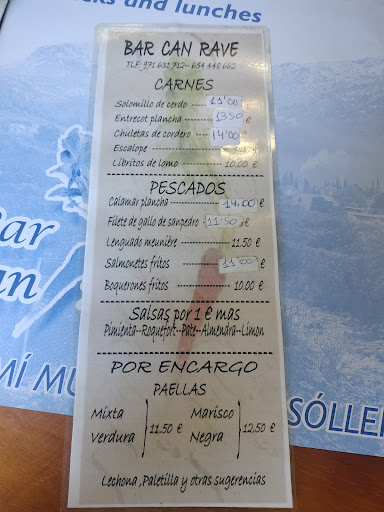 cks and lunches
BAR CAN RAVE
TLF: 971 631 712-- 654 448 662
CARNES
Solomillo de cerdo 11'00 €
Entrecot plancha 13'50 €
Chuletas de cordero 14'00 €
Escalope €
Libritos de lomo 10.00 €
PESCADOS
Calamar plancha 14.00 €
Filete de gallo de sanpedro 11'50 €
Lenguado meunière 11.50 €
Salmonetes fritos 11'00 €
Boquerones fritos 10.00 €
Salsas por 1 € mas
Pimienta--Roquefort--Pate--Almendra--Limon
POR ENCARGO
PAELLAS
Mixta
Verdura
11.50 €
Marisco
Negra
12,50 €
Lechona ,Paletilla y otras sugerencias
Bar
an
MÍ MU
SÓLLE